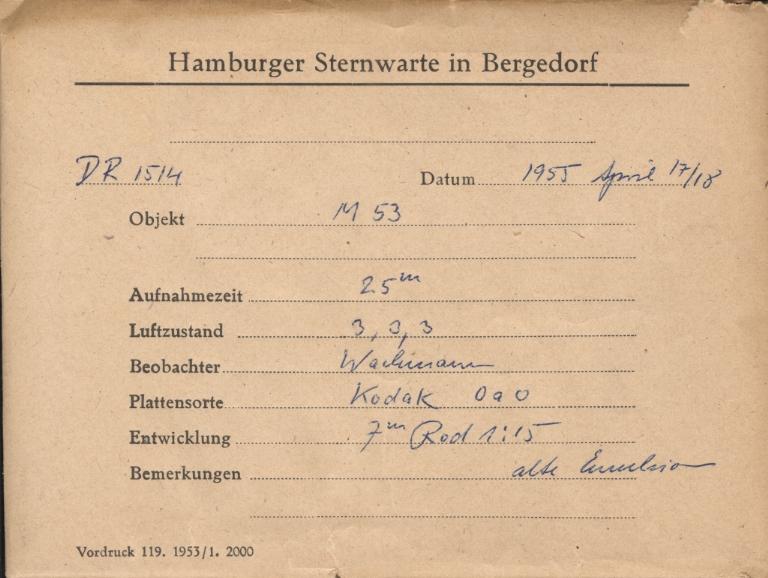 Hamburger Sternwarte in Bergedorf
DR 1514 Datum 1955 April 17/18
Objekt M 53
Aufnahmezeit 25m
Luftzustand 3, 3, 3
Beobachter Wachmann
Plattensorte Kodak 0a0
Entwicklung 7m Rod 1:15
Bemerkungen alte Emulsion
Vordruck 119. 1953/1. 2000